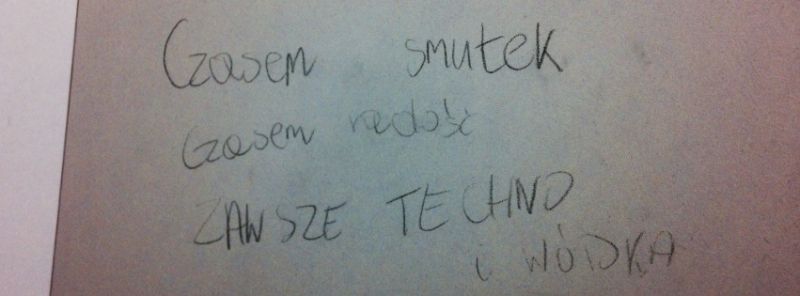 Czasem smutek
Czasem radość
ZAWSZE TECHNO
i WÓDKA